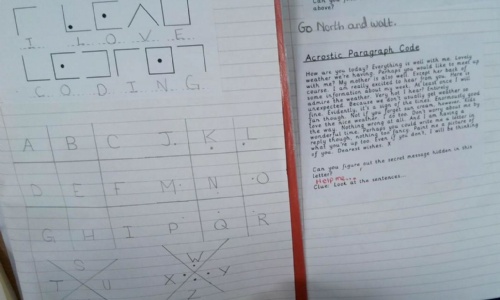 I L O V E
C O D I N G
A B C J K L
D E F M N O
G H I P Q R
S
T U
W
X Y
Z
Can you
above?
Go North and wait.
Acrostic Paragraph Code
How are you today? Everything is well with me. Lovely
weather we're having. Perhaps you would like to meet up
with me? My mother is also well. Except her back of
course. I am really excited to hear from you. Here is
some information about my week. At least once I will
admire the weather. Very hot I hear! Entirely
unexpected. Because we don't usually get weather so
fine. Evidently, it's a sign of the times. Enormously good
fun though. Not if you forget sun cream, however. Kids
love the nice weather. I do too. Don't worry about me by
the way. Nothing wrong at all. And I am having a
wonderful time. Perhaps you could write me a letter in
reply though, nothing too fancy. Paint me a picture of
what you're up to. Even if you don't, I will be thinking
of you. Dearest wishes. X
Can you figure out the secret message hidden in this
letter?
Help me...
Clue: Look at the sentences...